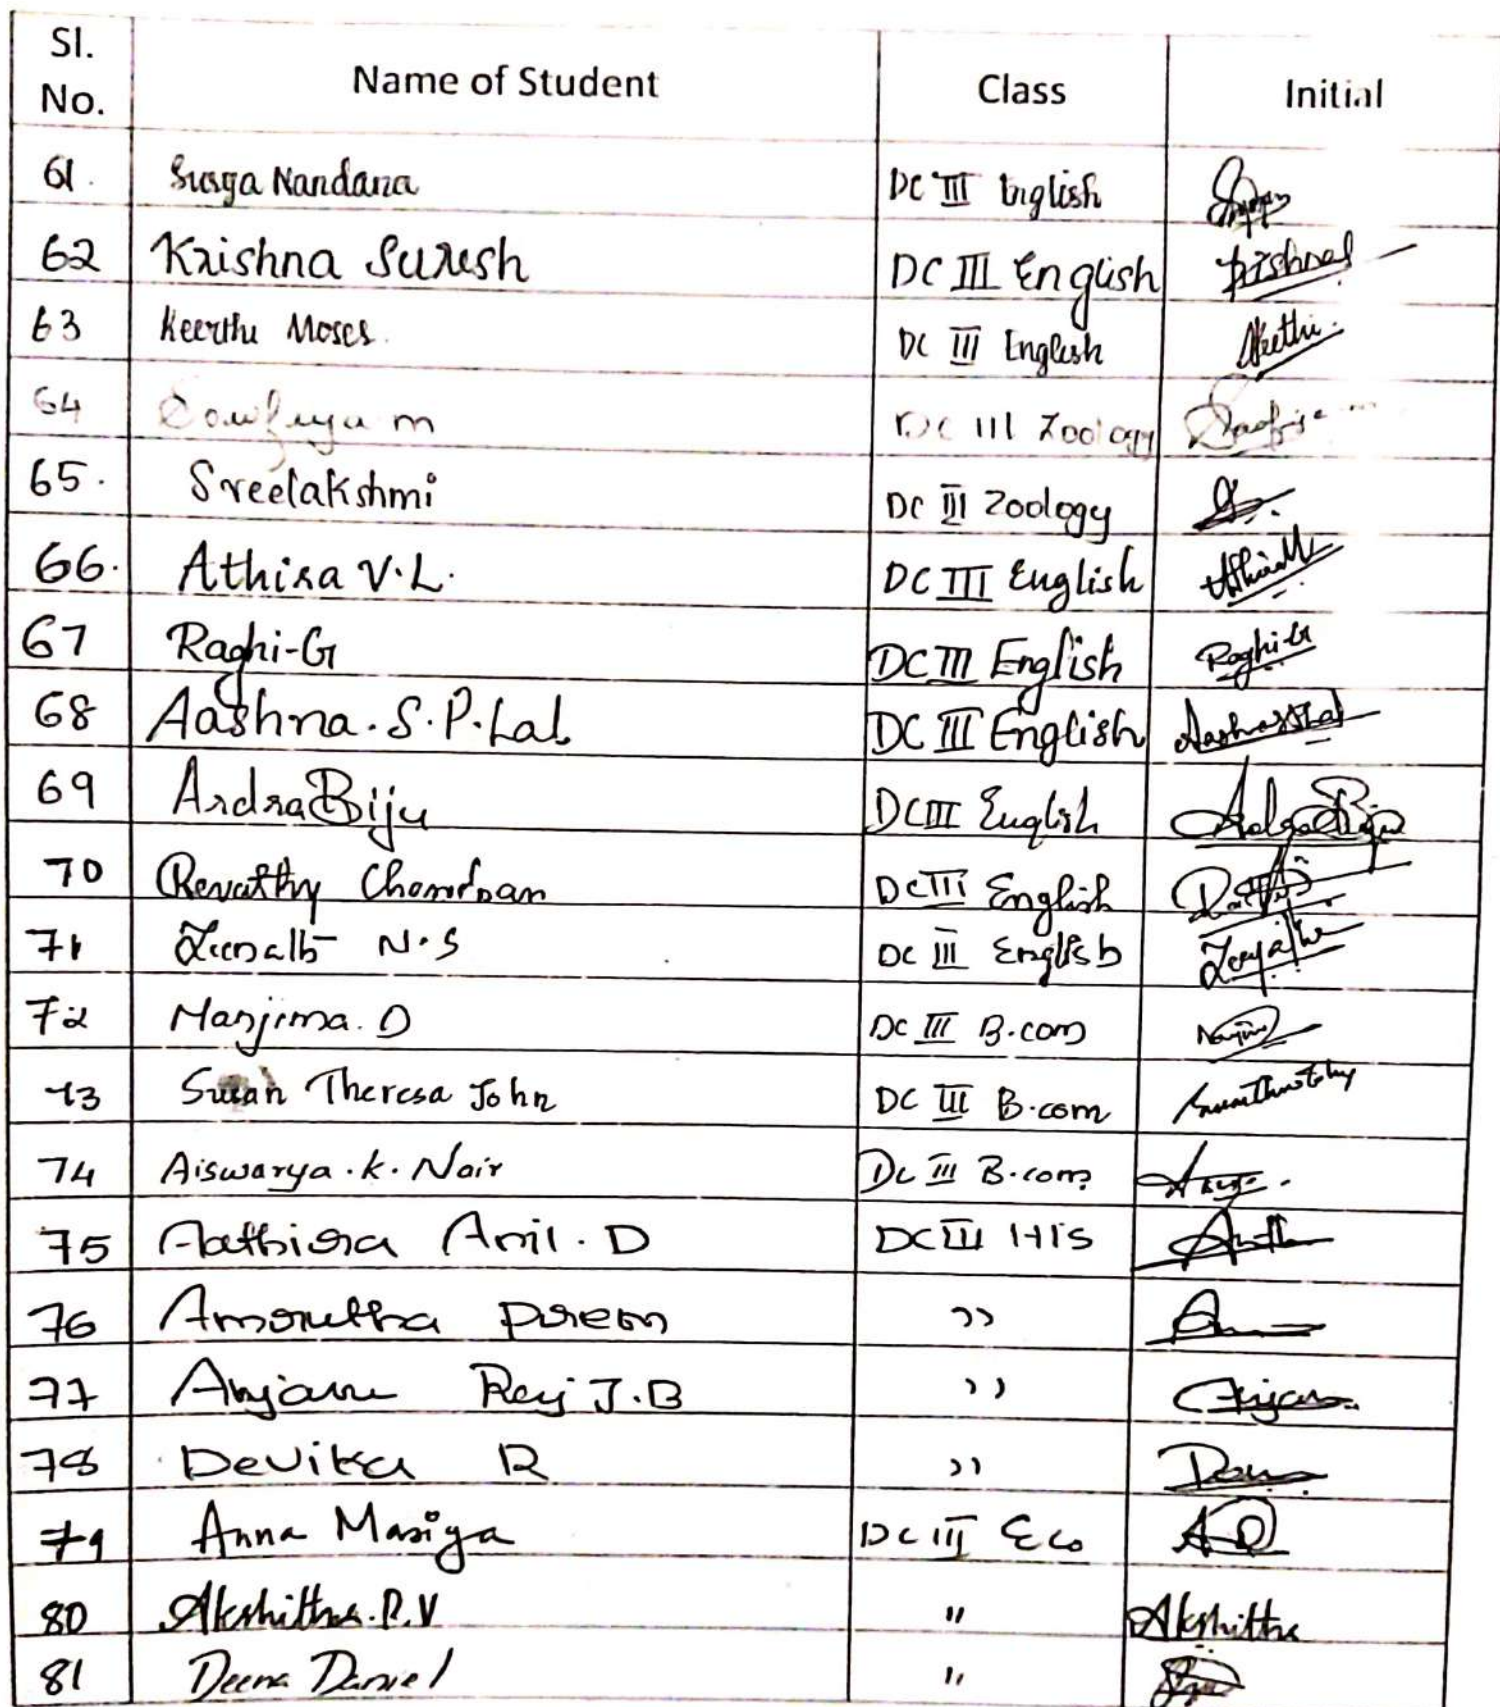 Sl. No. Name of Student Class Initial
61. Surya Nandana DC III English
62 Krishna Suresh DC III English Krishnas
63 Keerthi Moses. DC III English Keethi.
64 Sowfiya m DC III Zoology
65. Sreelakshmi DC III Zoology
66. Athira V.L. DC III English
67 Raghi-G DC III English Raghi-G
68 Aashna.S.P.Lal DC III English
69 Ardra Biju DC III English
70 Revathy Chandran DC III English
71 N.S DC III English
72 Manjima.D DC III B.com
73 Susan Theresa John DC III B.com
74 Aiswarya.K.Nair DC III B.com
75 Aathira Anil.D DC III HIS
76 Amrutha Prem ,,
77 Anjana Raj J.B ,,
78 Devika R ,,
79 Anna Mariya DC III Eco
80 Akshitha.P.V " Akshitha
81 Deena Daniel "